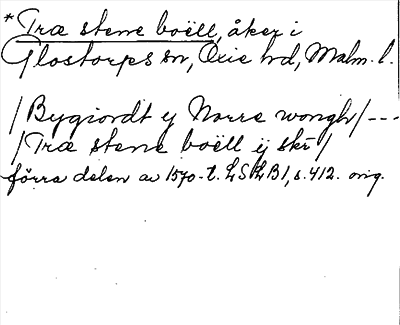 *Træ stene boëll, åker i
Glostorps sn, Oxie hd, Malm. l.
/Bygiordt y Norre wongh/---
/Træ stene boëll ij skr/
förra delen av 1570-t. LSLB1, s. 412. orig.